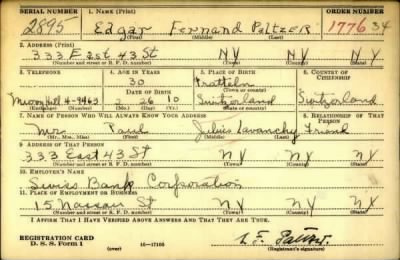 SERIAL NUMBER 1. NAME (Print) ORDER NUMBER
2895 Edgar Fernand Paltzer 1776 34
(First) (Middle) (Last)
2. ADDRESS (Print)
333 East 43 St NY NY
(Number and street or R. F. D. number) (Town) (County) (State)
3. TELEPHONE 4. AGE IN YEARS 5. PLACE OF BIRTH 6. COUNTRY OF CITIZENSHIP
30 Pratteln
DATE OF BIRTH (Town or county)
Murray Hill 4-9463 26 10 Switzerland Switzerland
(Exchange) (Number) (Mo.) (Day) (Yr.) (State or country)
7. NAME OF PERSON WHO WILL ALWAYS KNOW YOUR ADDRESS 8. RELATIONSHIP OF THAT PERSON
Mr. Paul Julius Lavanchy Friend
(Mr., Mrs., Miss) (First) (Middle) (Last)
9. ADDRESS OF THAT PERSON
333 East 43 St NY NY
(Number and street or R. F. D. number) (Town) (County) (State)
10. EMPLOYER'S NAME
Swiss Bank Corporation
11. PLACE OF EMPLOYMENT OR BUSINESS
15 Nassau St NY NY
(Number and street or R. F. D. number) (Town) (County) (State)
I AFFIRM THAT I HAVE VERIFIED ABOVE ANSWERS AND THAT THEY ARE TRUE.
REGISTRATION CARD
D. S. S. Form 1 (over) 16—17105
(Registrant's signature)